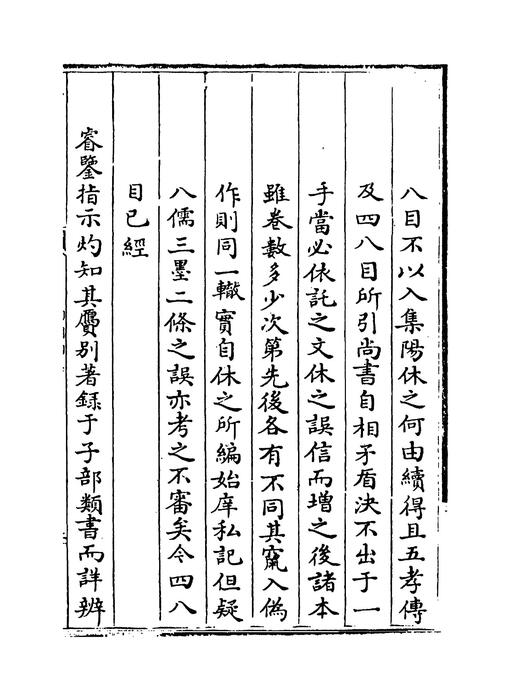 八目不以入集陽休之何由續得且五孝傳
及四八目所引尚書自相矛盾決不出于一
手當必依託之文休之誤信而增之後諸本
雖卷數多少次第先後各有不同其竄入偽
作則同一轍實自休之所編始庠私記但疑
八儒三墨二條之誤亦考之不審矣今四八
目已經
睿鑒指示灼知其贋别著錄于子部類書而詳辨